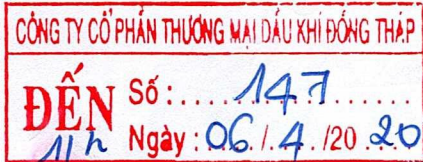 CÔNG TY CỔ PHẦN THƯƠNG MẠI DẦU KHÍ ĐỒNG THÁP
ĐẾN Số:.....147......
11h Ngày: 06/.4./20 20